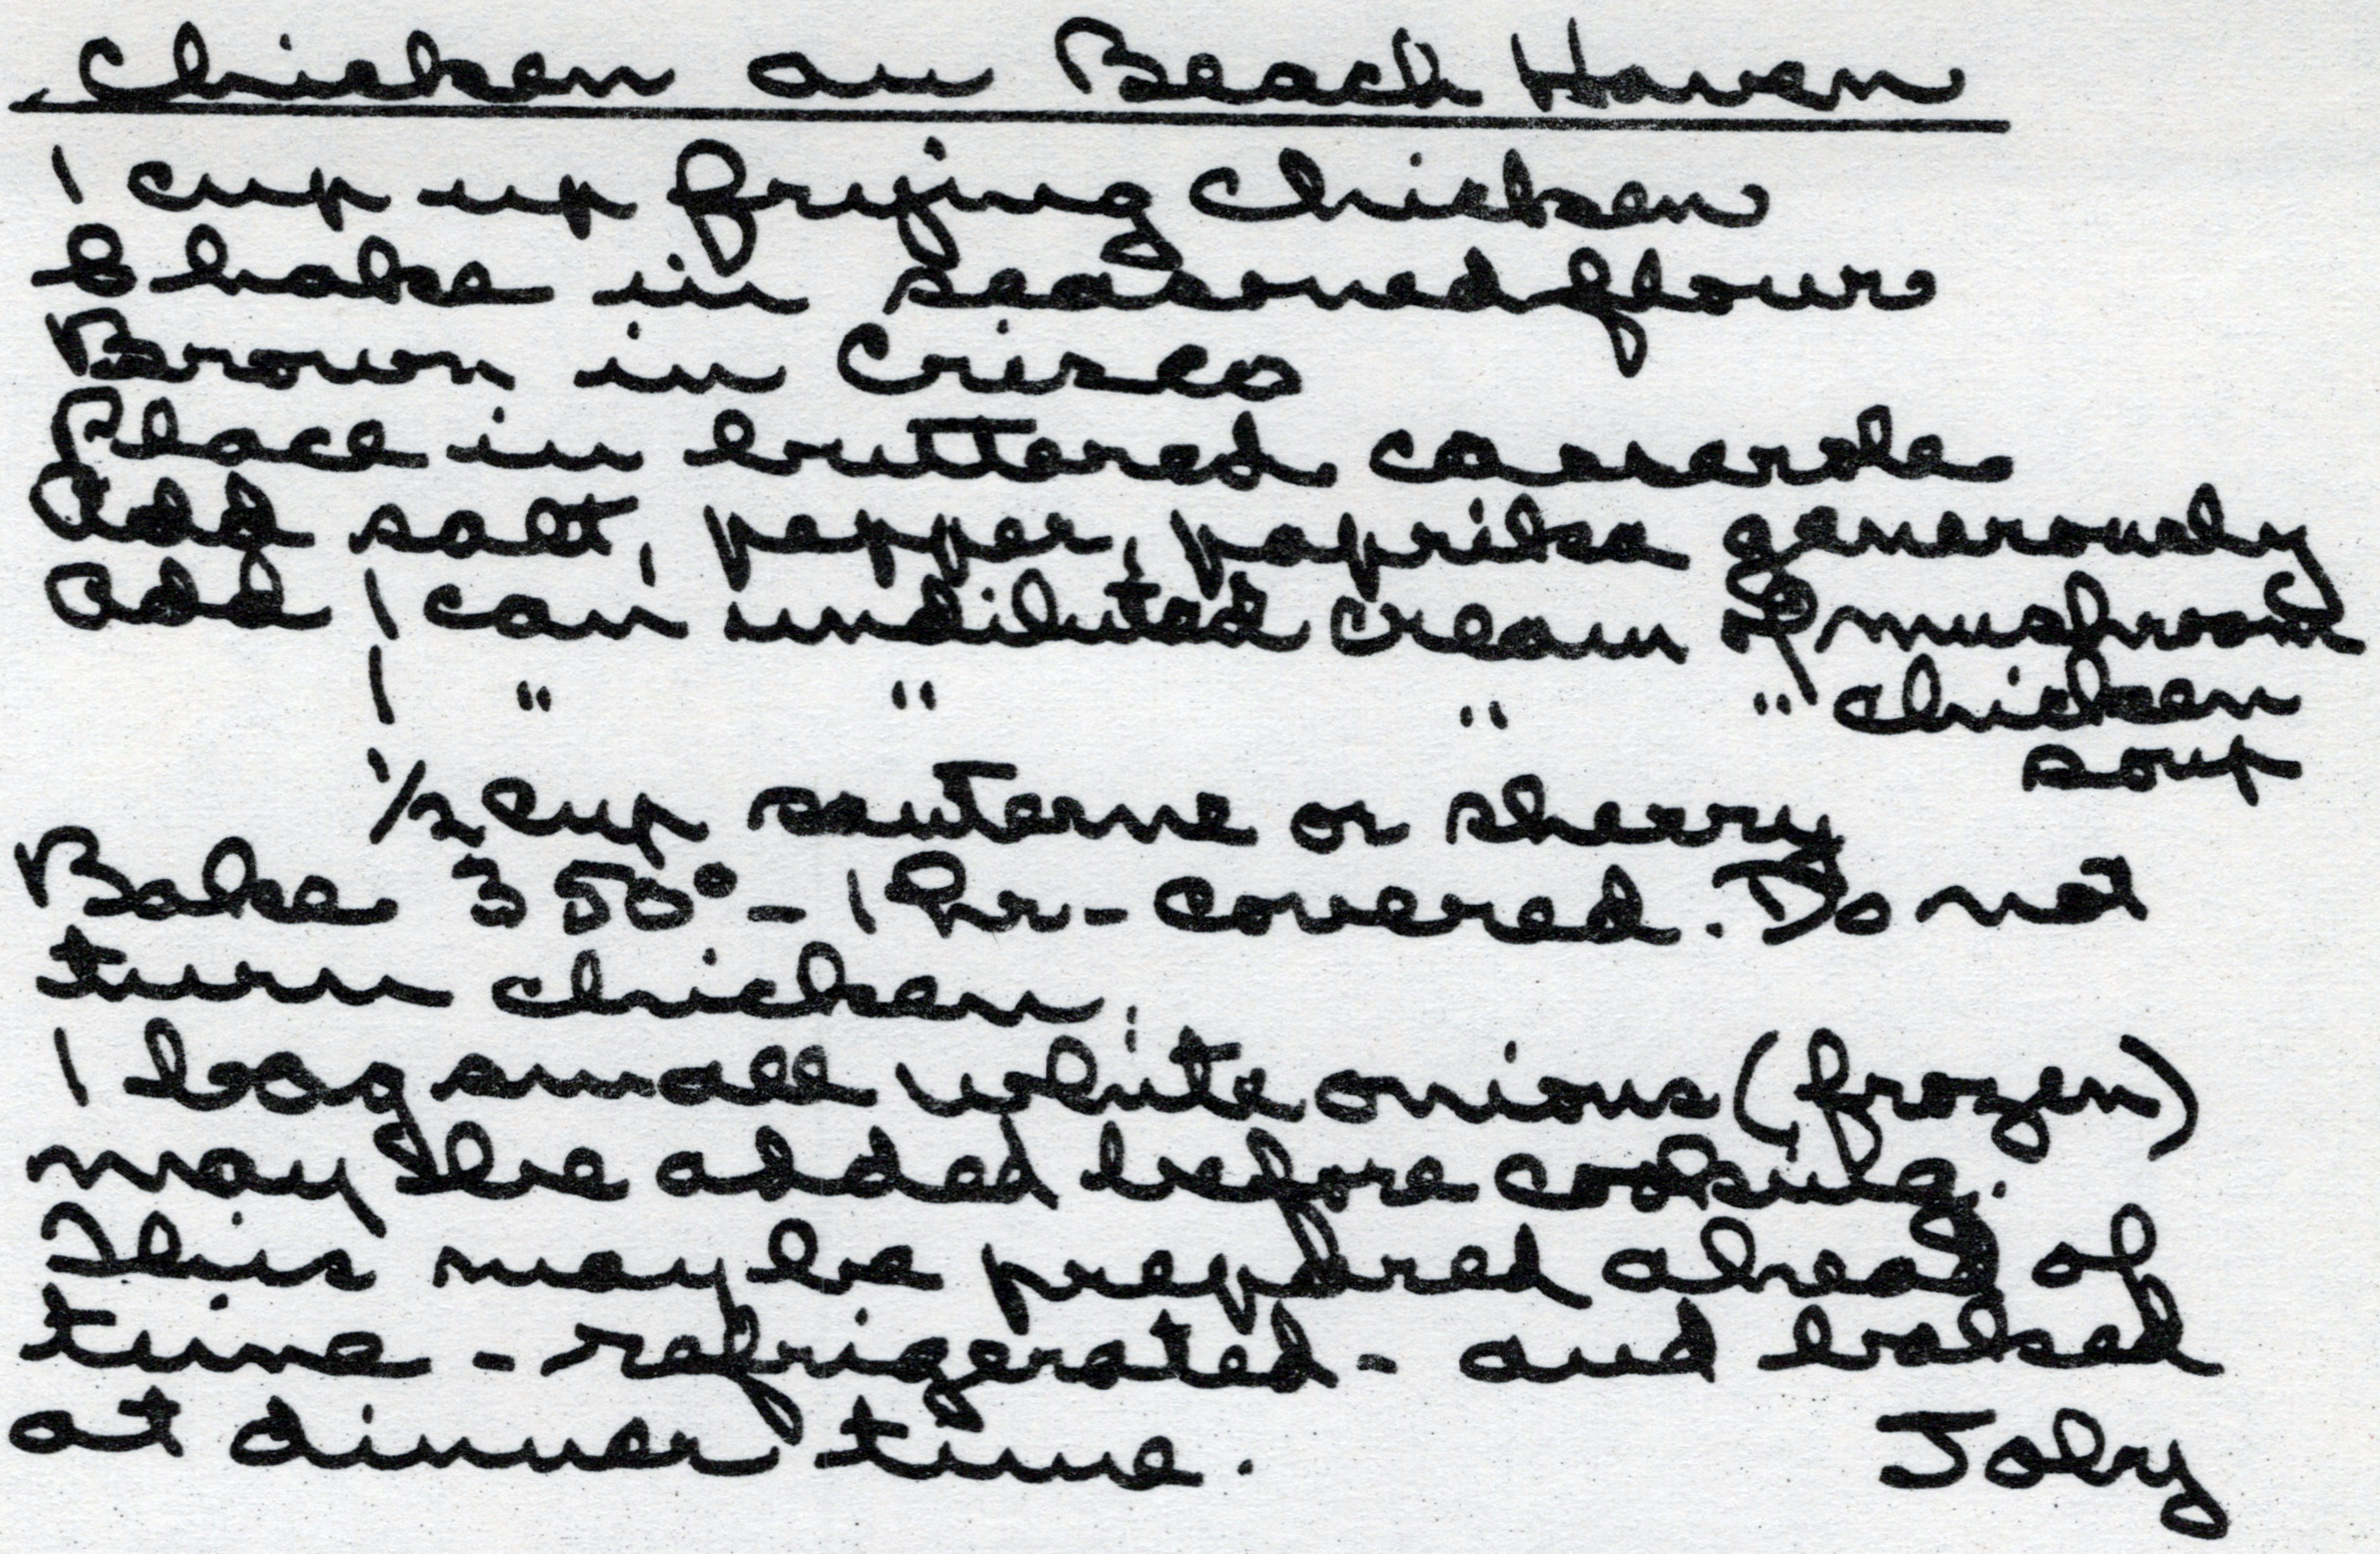 Chicken au Beach Haven
1 cup up frying chicken
Shake in seasoned flour
Brown in Crisco
Place in buttered casserole
Add salt, pepper, paprika generously
Add 1 can undiluted cream of mushroom
1 " " " " chicken
soup
1/2 cup sauterne or sherry
Bake 350° - 1 hr - covered. Do not
turn chicken.
1 bag small white onions (frozen)
may be added before cooking.
This may be prepared ahead of
time - refrigerated - and baked
at dinner time.
Joby